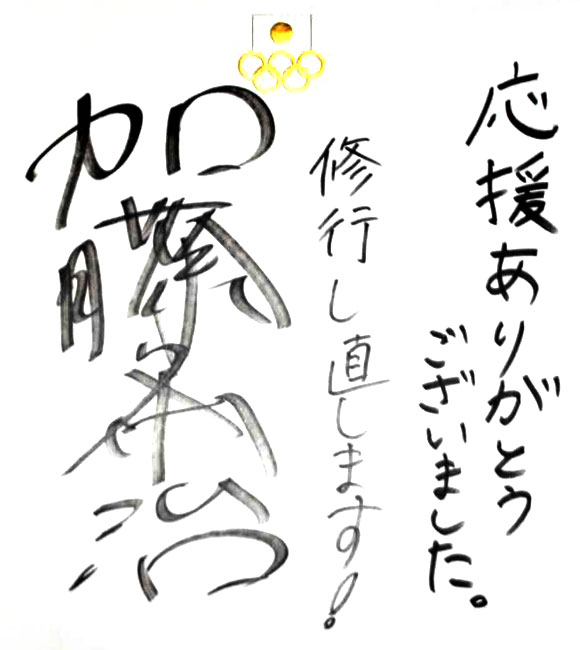 応援ありがとう
ございました。
修行し直します！
加藤条治